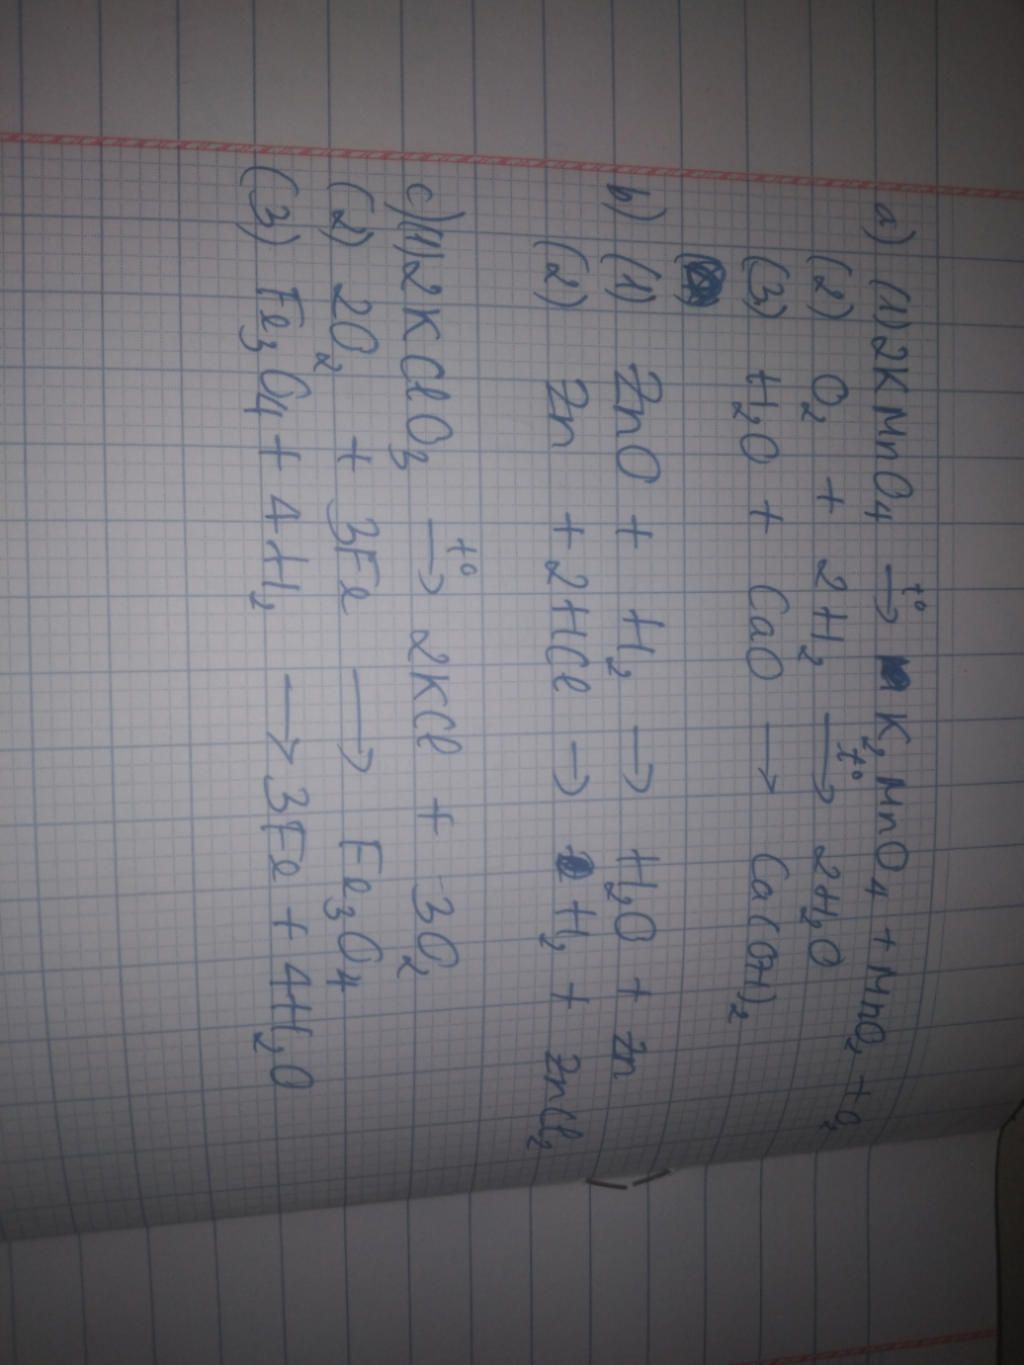 a) (1) 2KMnO4 t° → K2MnO4 + MnO2 + O2
(2) O2 + 2H2 t° → 2H2O
(3) H2O + CaO → Ca(OH)2
b) (1) ZnO + H2 → H2O + Zn
(2) Zn + 2HCl → H2 + ZnCl2
c) (1) 2KClO3 t° → 2KCl + 3O2
(2) 2O2 + 3Fe → Fe3O4
(3) Fe3O4 + 4H2 → 3Fe + 4H2O